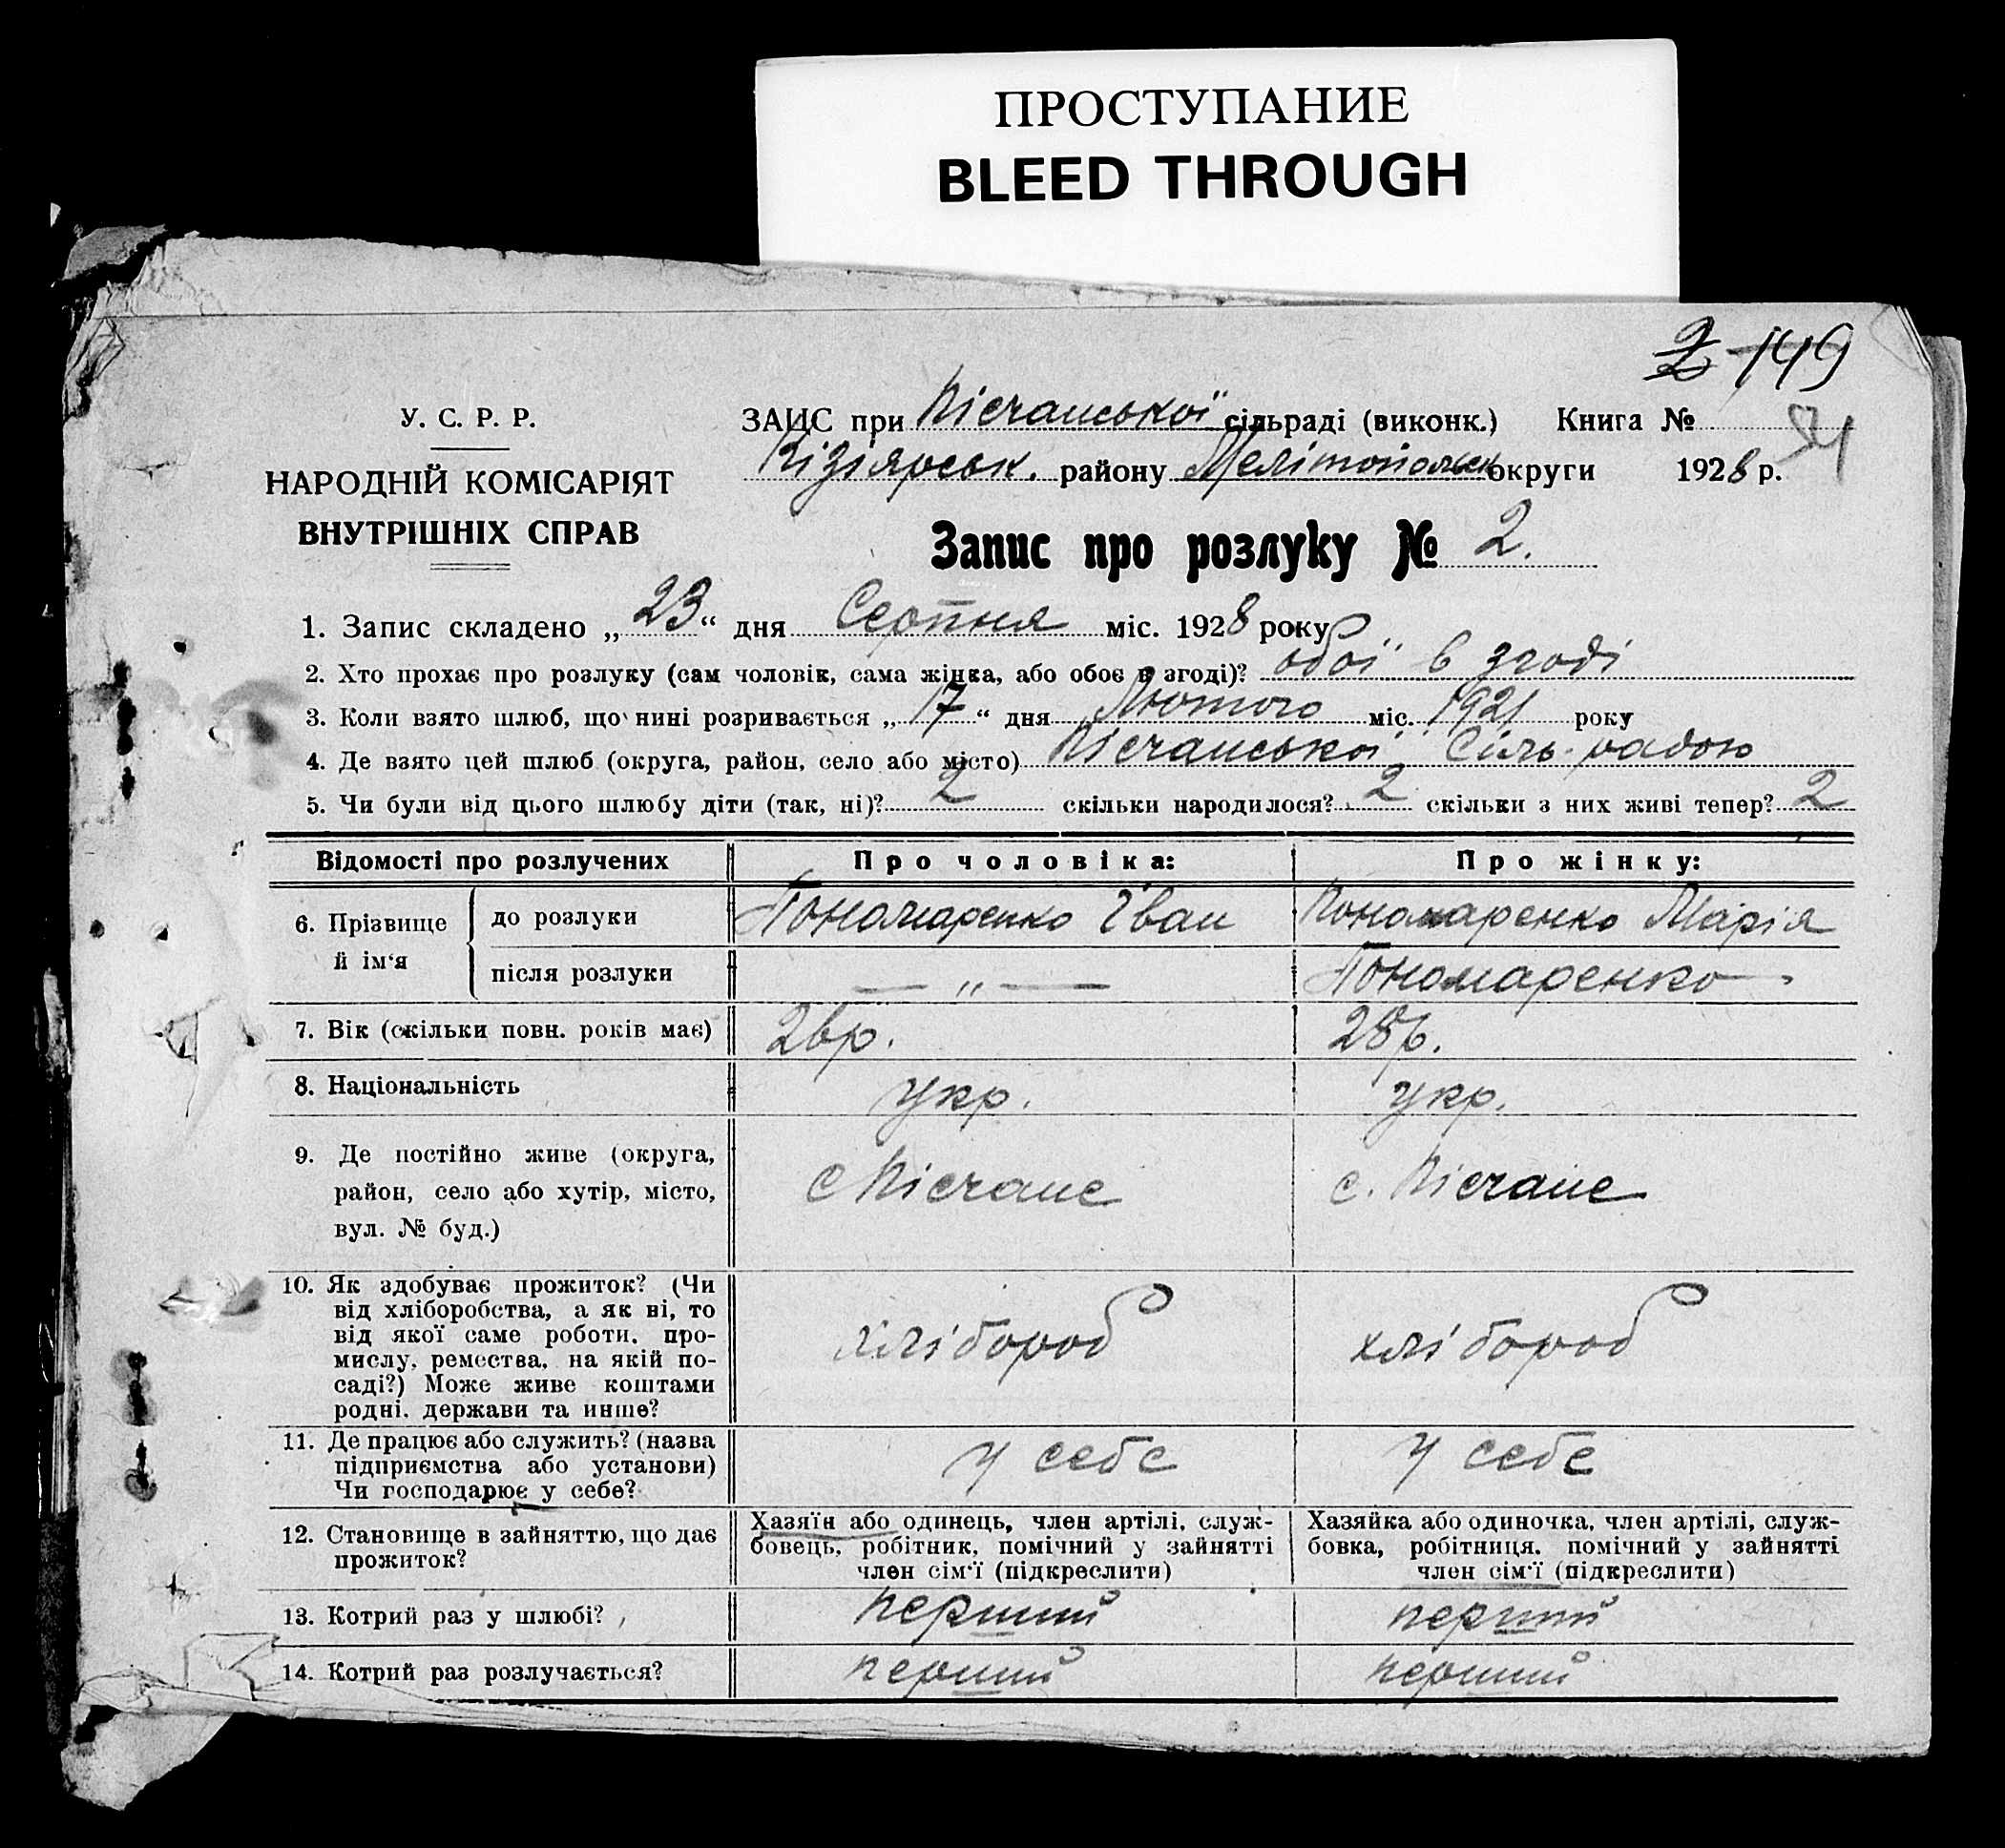 ПРОСТУПАНИЕ
BLEED THROUGH
2 149
У. С. Р. Р.
НАРОДНІЙ КОМІСАРІЯТ
ВНУТРІШНІХ СПРАВ
ЗАЦС при Пісчанської сільраді (виконк.) Книга №
Кізіярськ. району Мелітопольськ округи 1928 р.
Запис про розлуку № 2.
1. Запис складено „23“ дня Серпня міс. 1928 року
2. Хто прохає про розлуку (сам чоловік, сама жінка, або обоє в згоді)? обої в згоді
3. Коли взято шлюб, що нині розривається „17“ дня Лютого міс. 1921 року
4. Де взято цей шлюб (округа, район, село або місто) Пісчанської Сіль-радою
5. Чи були від цього шлюбу діти (так, ні)? 2 скільки народилося? 2 скільки з них живі тепер? 2
Відомості про розлучених Про чоловіка: Про жінку:
6. Прізвище й ім‘я
до розлуки Пономаренко Іван Пономаренко Марія
після розлуки — „ — Пономаренко
7. Вік (скільки повн. років має) 26р. 28р.
8. Національність укр. укр.
9. Де постійно живе (округа,
район, село або хутір, місто,
вул. № буд.)
с Пісчане с. Пісчане
10. Як здобуває прожиток? (Чи
від хліборобства, а як ні, то
від якої саме роботи, про-
мислу, ремества, на якій по-
саді?) Може живе коштами
родні, держави та инше?
хлібороб хлібороб
11. Де працює або служить? (назва
підприємства або установи)
Чи господарює у себе?
у себе у себе
12. Становище в зайняттю, що дає
прожиток?
Хазяїн або одинець, член артілі, служ-
бовець, робітник, помічний у зайнятті
член сім‘ї (підкреслити)
Хазяйка або одиночка, член артілі, служ-
бовка, робітниця, помічний у зайнятті
член сім‘ї (підкреслити)
13. Котрий раз у шлюбі? перший перший
14. Котрий раз розлучається? перший перший